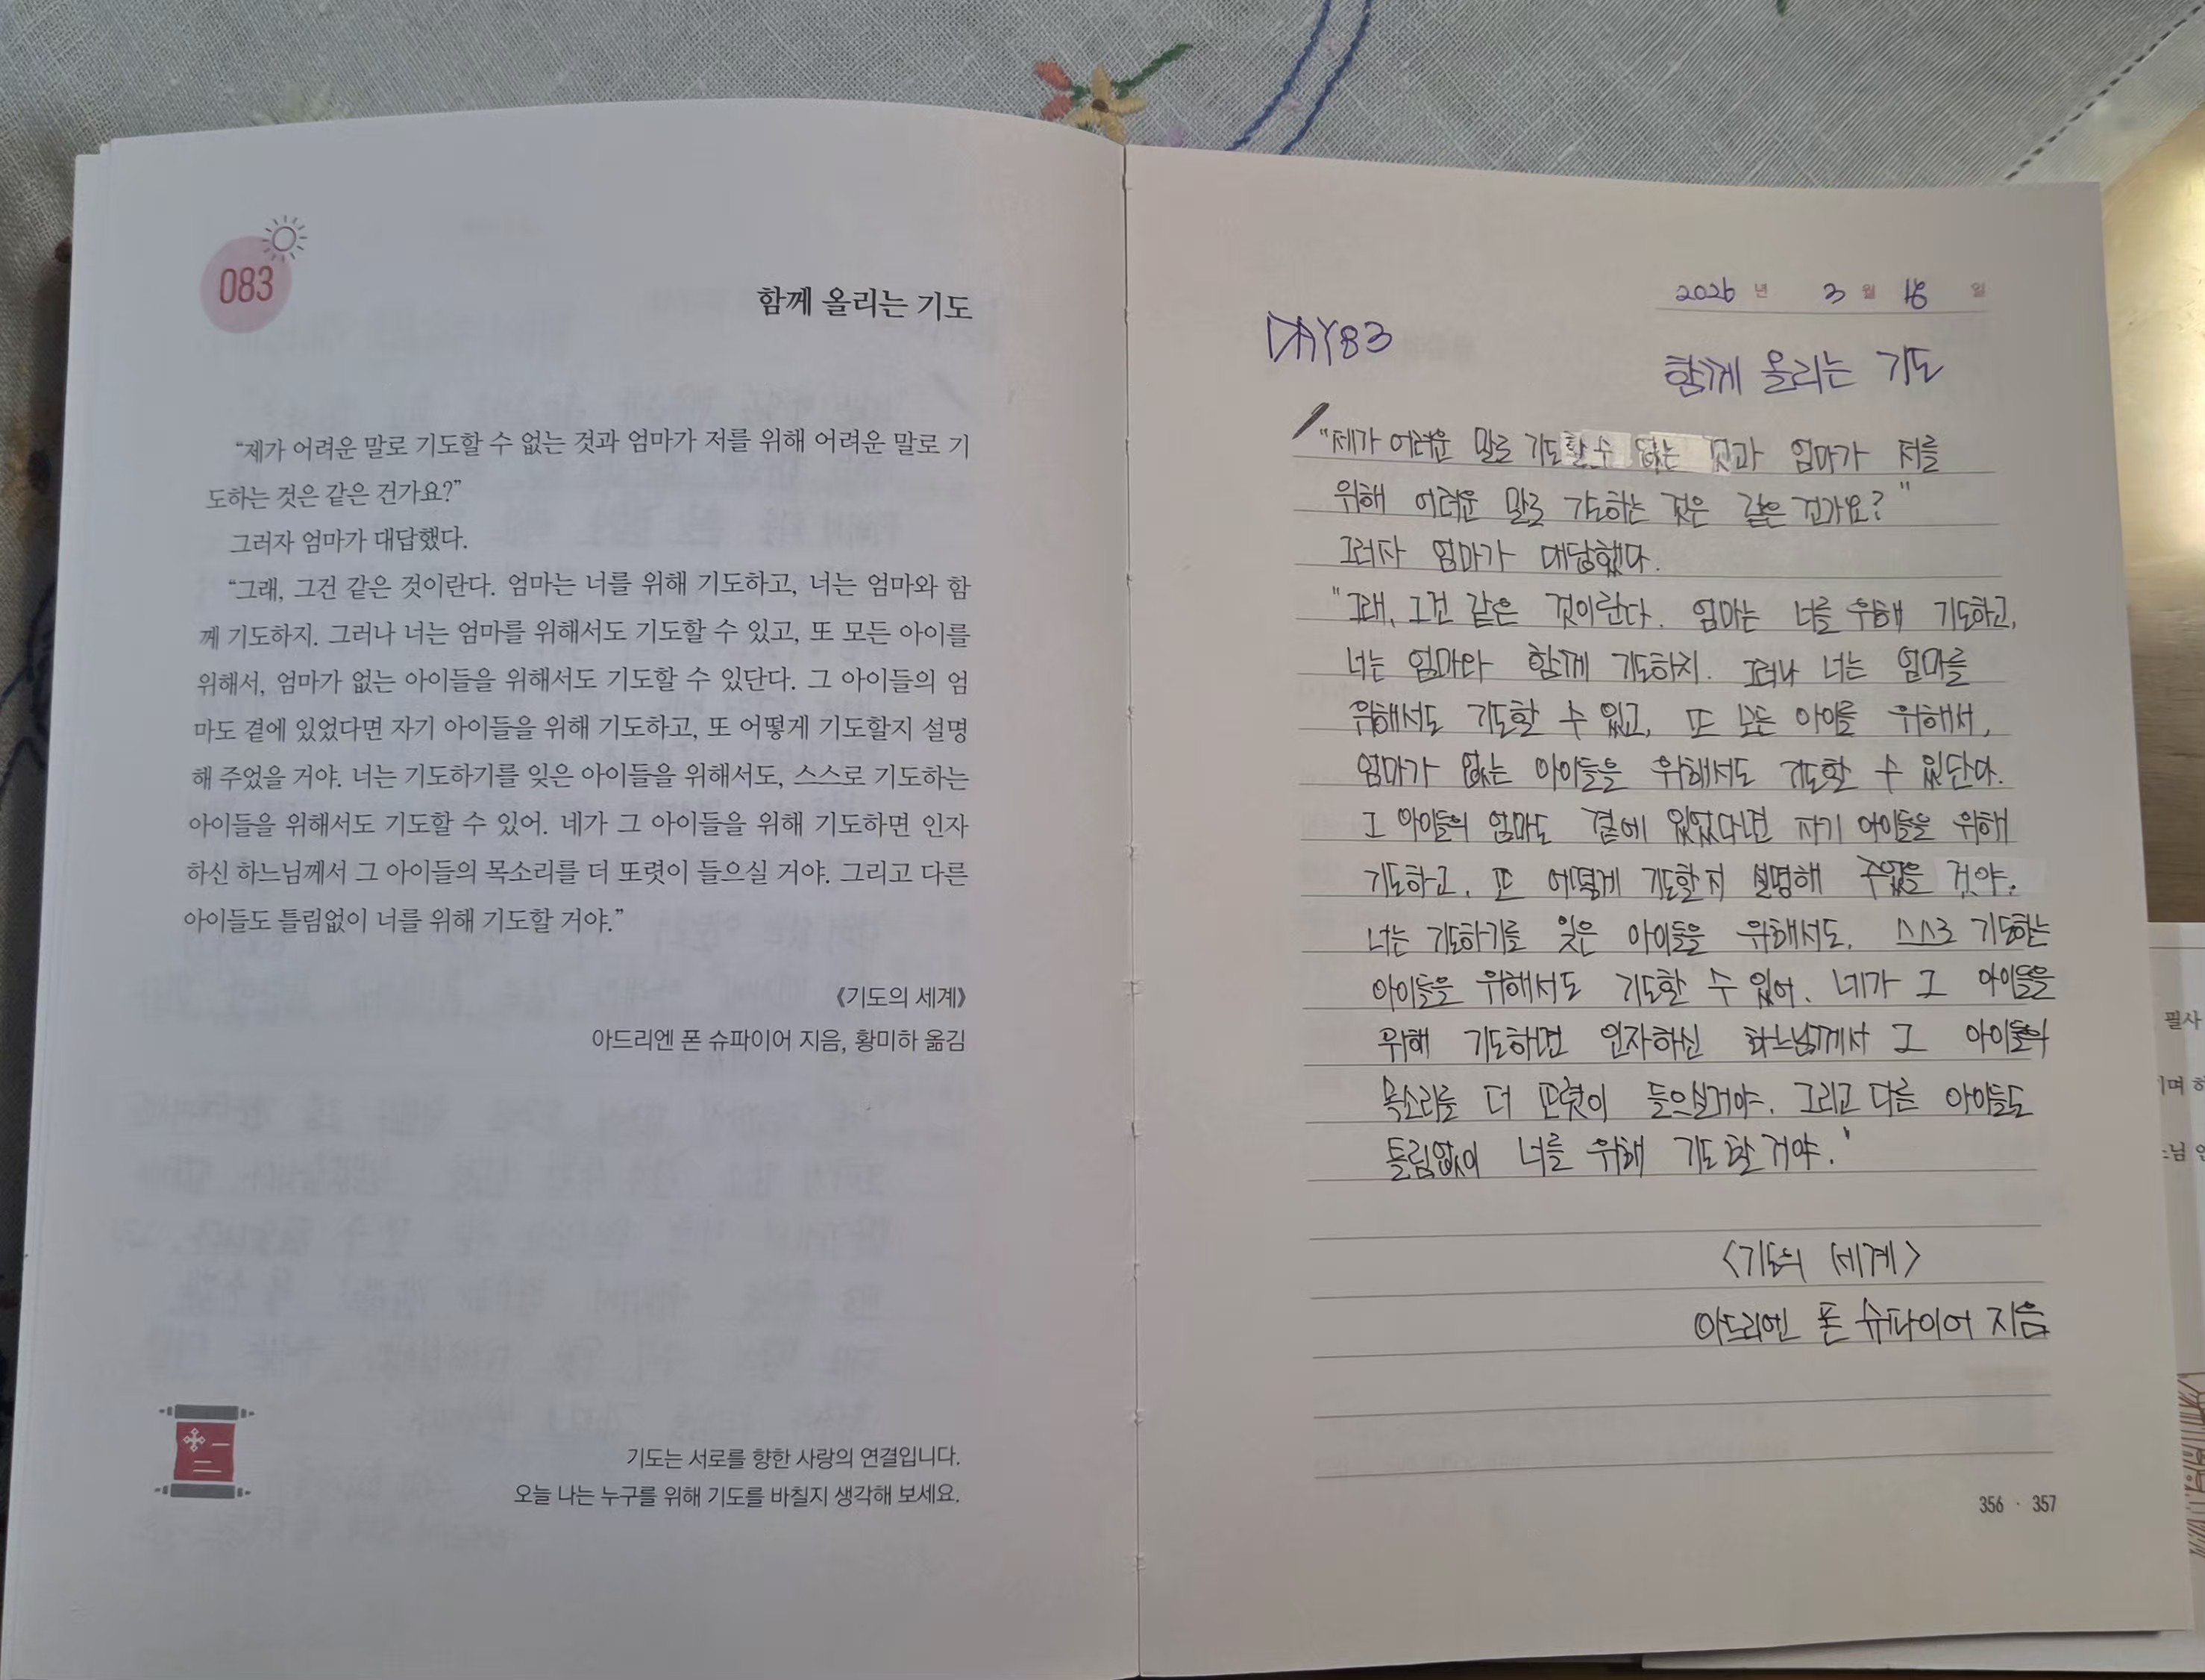 083
함께 올리는 기도
“제가 어려운 말로 기도할 수 없는 것과 엄마가 저를 위해 어려운 말로 기
도하는 것은 같은 건가요?”
그러자 엄마가 대답했다.
“그래, 그건 같은 것이란다. 엄마는 너를 위해 기도하고, 너는 엄마와 함
께 기도하지. 그러나 너는 엄마를 위해서도 기도할 수 있고, 또 모든 아이를
위해서, 엄마가 없는 아이들을 위해서도 기도할 수 있단다. 그 아이들의 엄
마도 곁에 있었다면 자기 아이들을 위해 기도하고, 또 어떻게 기도할지 설명
해 주었을 거야. 너는 기도하기를 잊은 아이들을 위해서도, 스스로 기도하는
아이들을 위해서도 기도할 수 있어. 네가 그 아이들을 위해 기도하면 인자
하신 하느님께서 그 아이들의 목소리를 더 또렷이 들으실 거야. 그리고 다른
아이들도 틀림없이 너를 위해 기도할 거야.”
《기도의 세계》
아드리엔 폰 슈파이어 지음, 황미하 옮김
기도는 서로를 향한 사랑의 연결입니다.
오늘 나는 누구를 위해 기도를 바칠지 생각해 보세요.
2026 년 3 월 일
DAY83
함께 올리는 기도
“제가 어려운 말로 기도할 수 없는 것과 엄마가 저를
위해 어려운 말로 기도하는 것은 같은 건가요?"
그러자 엄마가 대답했다.
"그래, 그건 같은 것이란다. 엄마는 너를 위해 기도하고,
너는 엄마와 함께 기도하지. 그러나 너는 엄마를
위해서도 기도할 수 있고, 또 모든 아이를 위해서,
엄마가 없는 아이들을 위해서도 기도할 수 있단다.
그 아이들의 엄마도 곁에 있었다면 자기 아이들을 위해
기도하고, 또 어떻게 기도할지 설명해 주었을 것야.
너는 기도하기를 잊은 아이들을 위해서도, 스스로 기도하는
아이들을 위해서도 기도할 수 있어. 네가 그 아이들을
위해 기도하면 인자하신 하느님께서 그 아이들의
목소리를 더 또렷이 들으실거야. 그리고 다른 아이들도
틀림없이 너를 위해 기도할거야.'
<기도의 세계>
아드리엔 폰 슈파이어 지음
356 · 357
필사